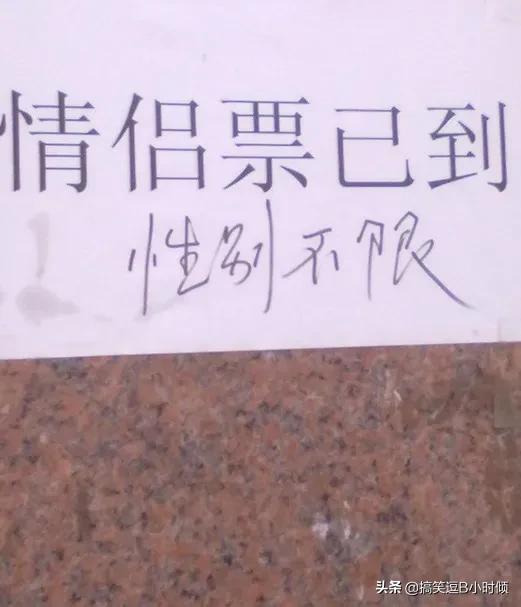 情侣票已到
性别不限
头条 @搞笑逗B小时倾